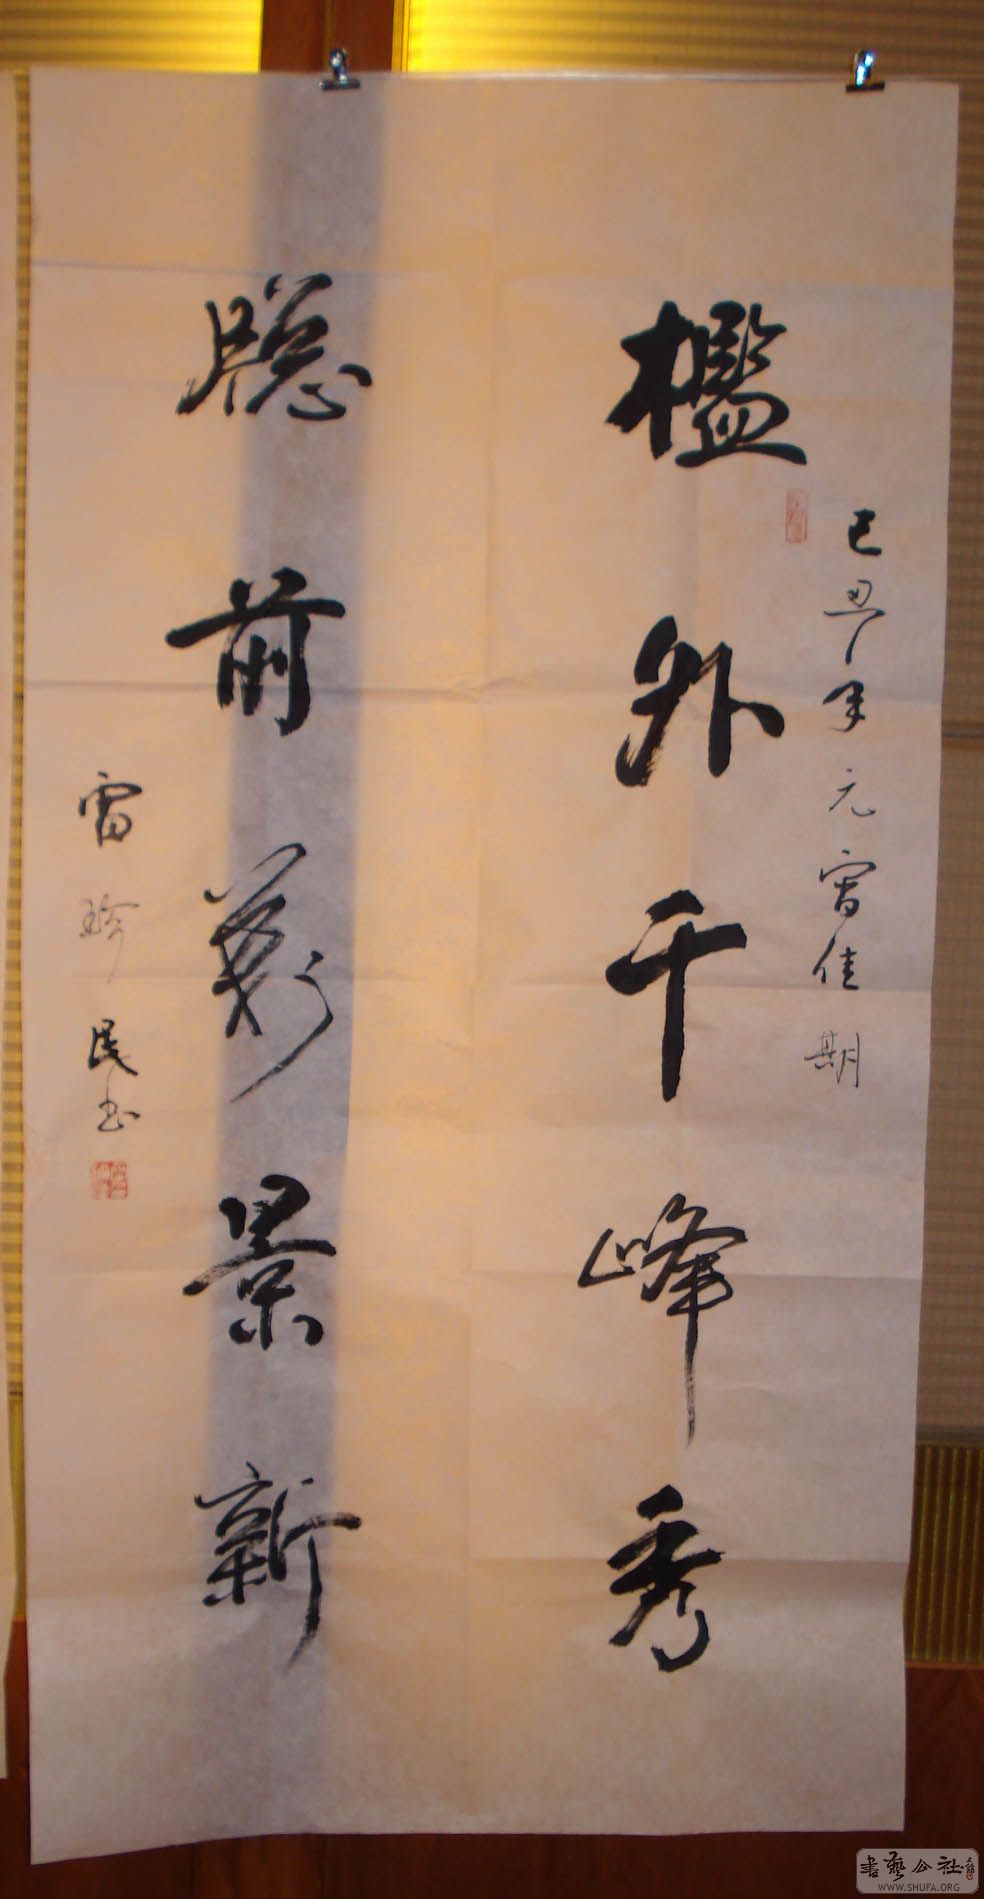 己丑年元宵佳期
檻外千峰秀
牕前萬景新
雷珍民书
書藝公社
WWW.SHUFA.ORG